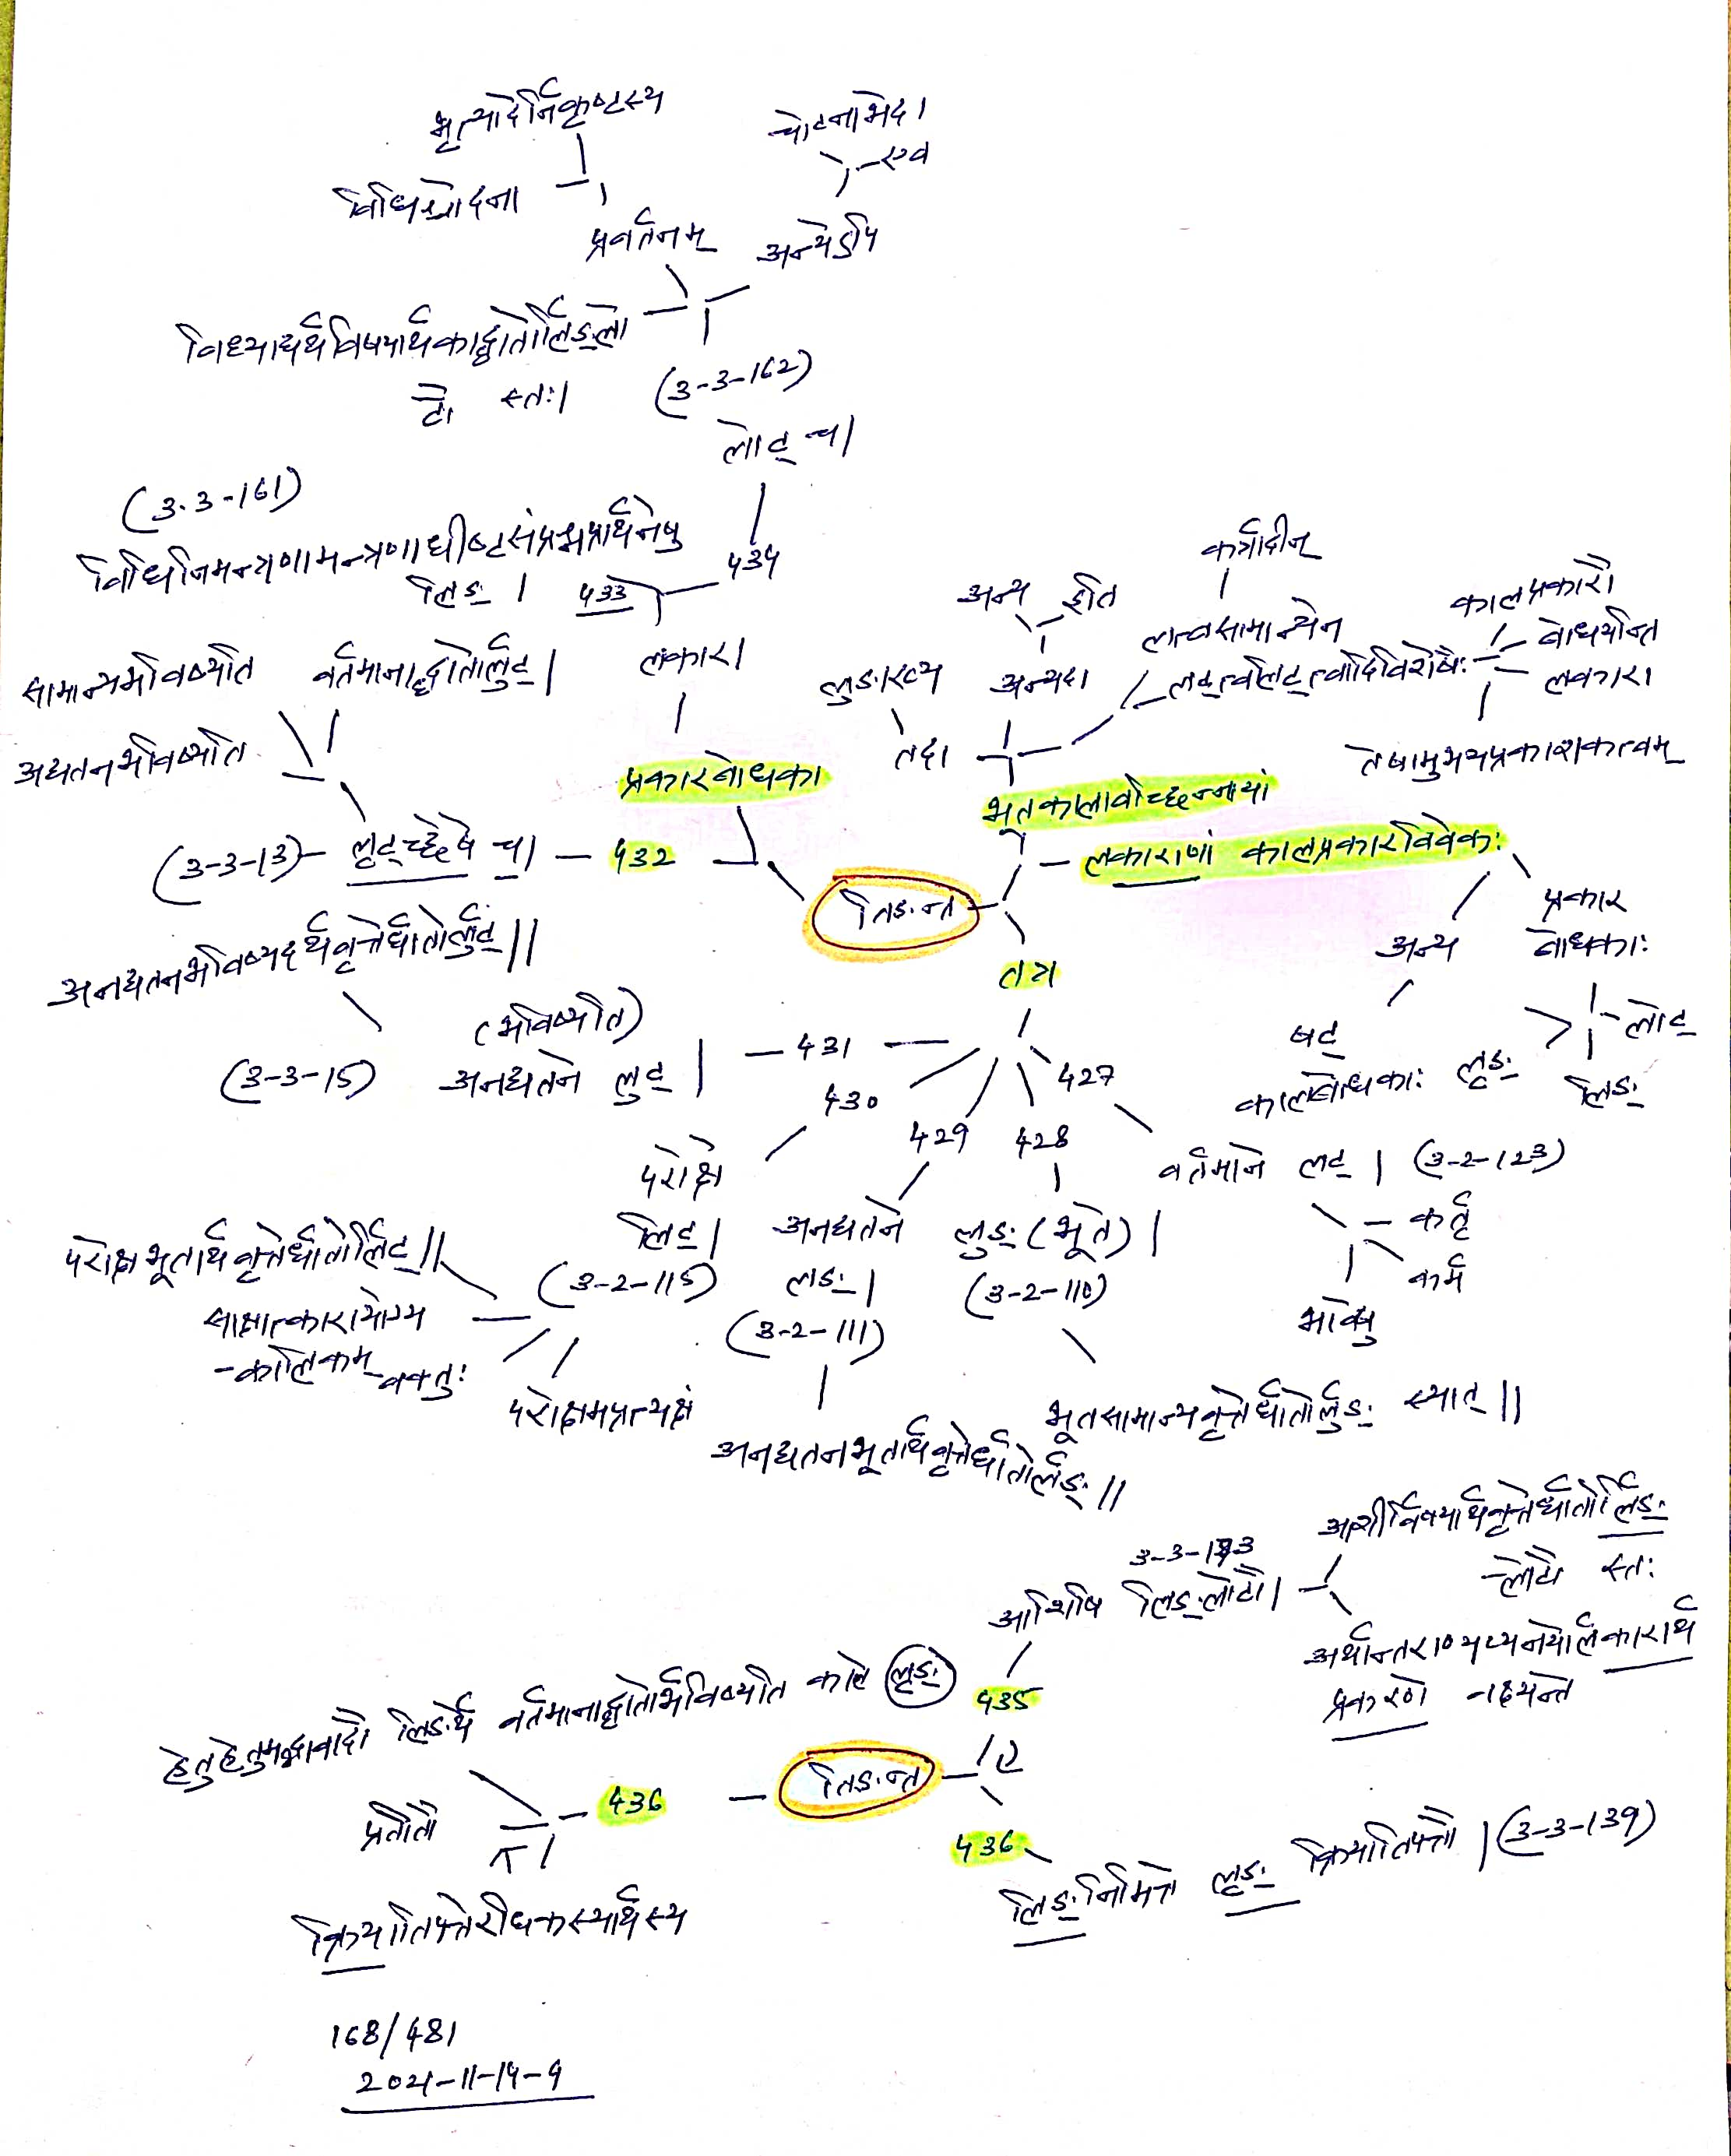 भृत्यादेर्निकृष्टस्य
चोदनाभेदा
एव
विधिश्चोदना
प्रवर्तनम्
अन्येऽपि
विध्याद्यर्थविषयार्थकाद्धातोर्लिङ्लो
टौ स्तः।
(3-3-162)
लोट् च।
(3.3-161)
विधिनिमन्त्रणामन्त्रणाधीष्टसंप्रश्नप्रार्थनेषु
लिङ् ।
433
434
लकारा
सामान्यभविष्यति
वर्तमानाद्धातोर्लृट् |
अद्यतनभविष्यति
प्रकारबोधका
(3-3-13) - लृट् च्छेषे च। - 432
अनद्यतनभविष्यदर्थवृत्तेर्धातोर्लुट् ||
(3-3-15)
(भविष्यति)
अनद्यतने लुट् |
431
तिङन्त
अन्य इति
कर्त्रादीन्
लुङास्त्य
अन्यदा
तदा
लत्वसामान्येन
लट्त्वलिट्त्वादिविशेषैः
कालप्रकारौ
बोधयन्ति
लकारा
तेषामुभयप्रकाशकत्वम्
भूतकालावच्छिन्नायां
लकाराणां कालप्रकारविवेकः
अन्य
षट्
कालबोधकाः
प्रकार
बोधकाः
लृङ्
लोट्
लिङ्
तत्र
427
428
429
430
वर्तमाने लट् | (3-2-123)
कर्तृ
कर्म
भावेषु
लुङ् (भूते) |
(3-2-110)
भूतसामान्यवृत्तेर्धातोर्लुङ् स्यात् ||
अनद्यतने
लङ् |
(3-2-111)
अनद्यतनभूतार्थवृत्तेर्धातोर्लङ् ||
परोक्षे
लिट् |
(3-2-115)
परोक्षभूतार्थवृत्तेर्धातोर्लिट् ||
साक्षात्कारायोग्य
-कालिकम्
वक्तुः
परोक्षमप्रत्यक्षं
3-3-173
आशिषि लिङ्लोटौ |
आशीर्विषयार्थवृत्तेर्धातोर्लिङ्
-लोटौ स्तः
अर्थान्तराण्यप्यनयोर्लकारार्थ
प्रकरणे वक्ष्यन्ते
435
हेतुहेतुमद्भावादौ लिङर्थे वर्तमानाद्धातोर्भविष्यति काले लृङ्
तिङन्त
436
प्रतीतौ
436
लिङ्निमित्ते लृङ् क्रियातिपत्तौ | (3-3-139)
168/481
2021-11-14-9